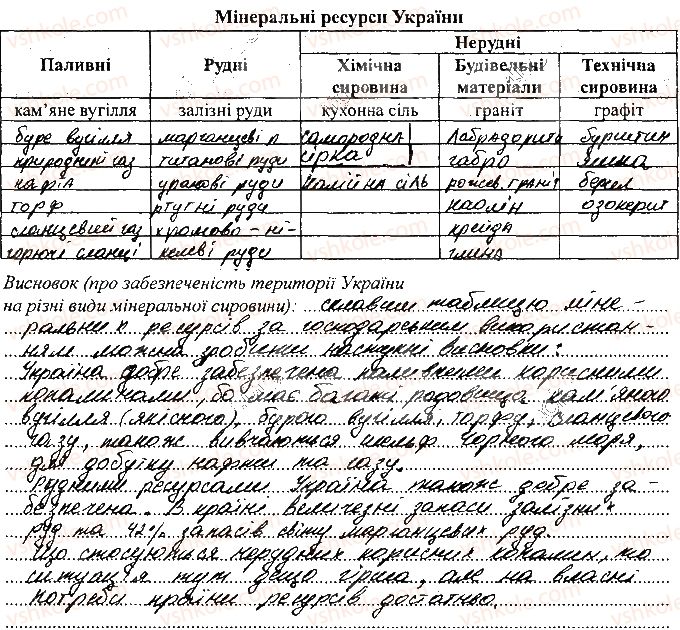 Мінеральні ресурси України
Паливні Рудні Нерудні
Хімічна сировина Будівельні матеріали Технічна сировина
кам’яне вугілля залізні руди кухонна сіль граніт графіт
буре вугілля марганцеві р самородна Лабрадорити бурштин
природний газ титанові руди сірка габро яшма
нафта уранові руди калійна сіль рожев. граніт берил
торф ртутні руди каолін озокерит
сланцевий газ хромово-ні- крейда
горючі сланці келеві руди глина
Висновок (про забезпеченість території України
на різні види мінеральної сировини): склавши таблицю міне-
ральних ресурсів за господарським використан-
ням можна зробити наступні висновки:
Україна добре забезпечена паливними корисними
копалинами, бо має багаті родовища кам'яного
вугілля (якісного), бурого вугілля, торфу, сланцевого
газу, також вивчаються шельф Чорного моря,
для добутку нафти та газу.
Рудними ресурсами Україна також добре за-
безпечена. В країні величезні запаси залізних
руд та 42% запасів світу марганцевих руд.
Що стосуються нерудних корисних копалин, то
ситуація тут дещо гірша, але на власні
потреби країни ресурсів достатньо.